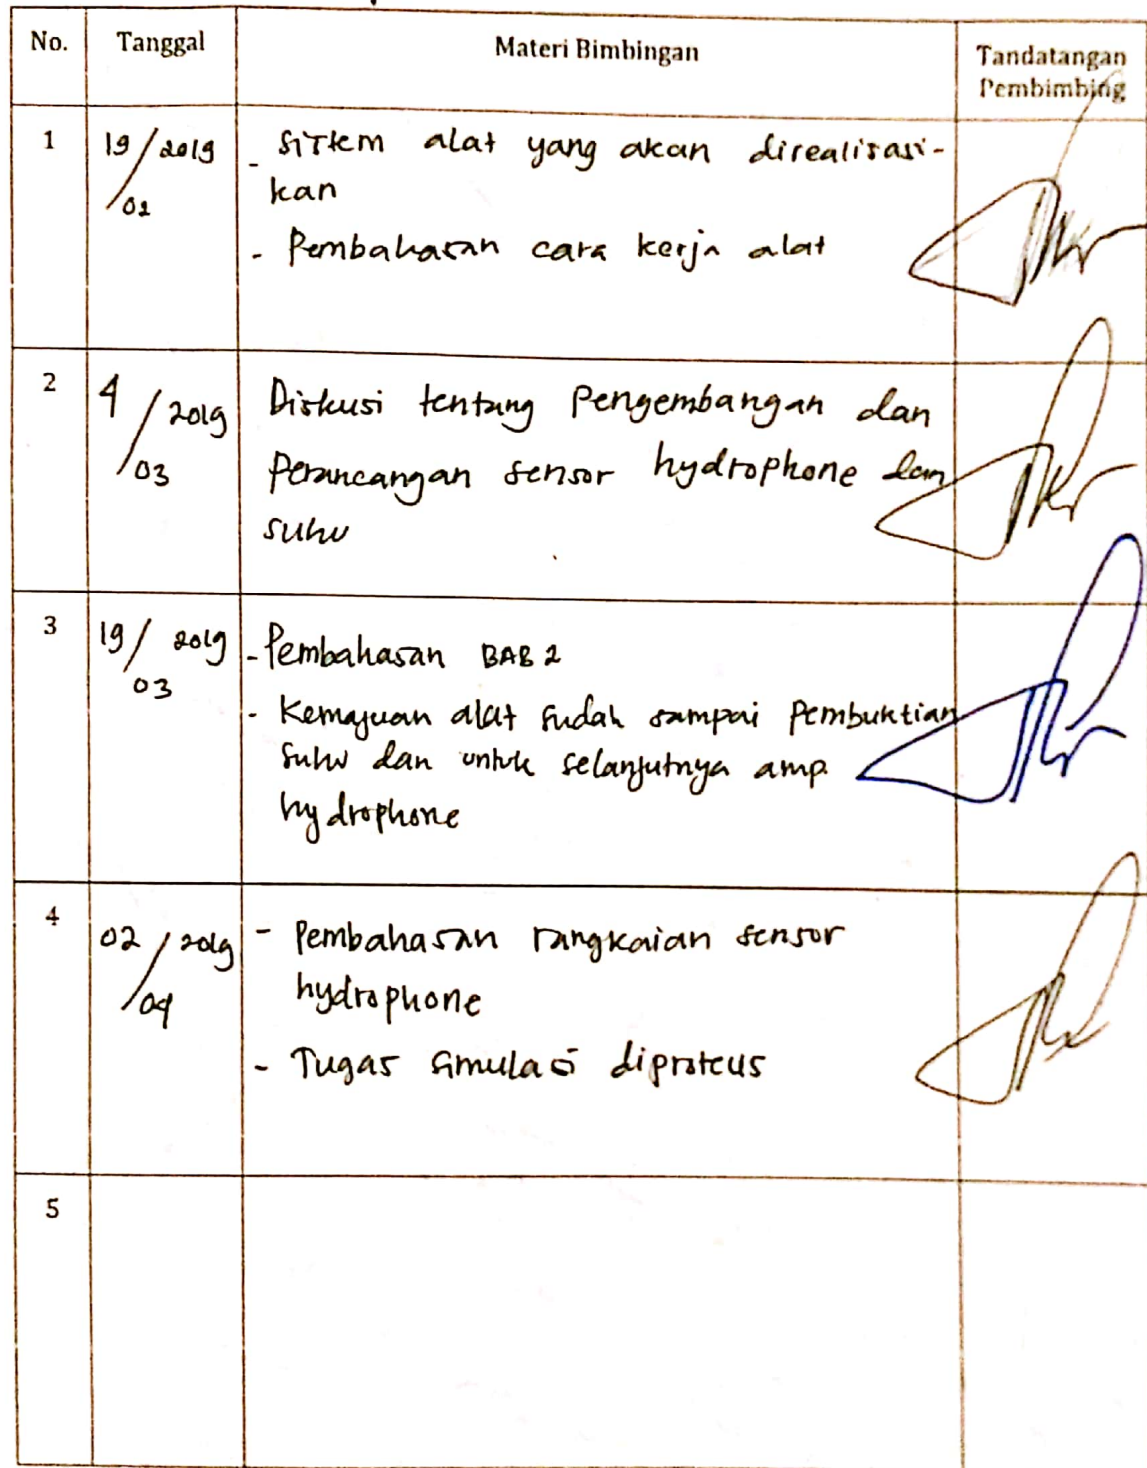 No. Tanggal Materi Bimbingan Tandatangan
Pembimbing
1 19/2019 - Sistem alat yang akan direalisasi-
/02 kan
- Pembahasan cara kerja alat
2 4/2019 Diskusi tentang Pengembangan dan
/03 Perancangan sensor hydrophone dan
suhu
3 19/2019 - Pembahasan BAB 2
03 - Kemajuan alat sudah sampai Pembuktian
suhu dan untuk selanjutnya amp.
hydrophone
4 02/2019 - Pembahasan rangkaian sensor
/04 hydrophone
- Tugas simulasi diproteus
5